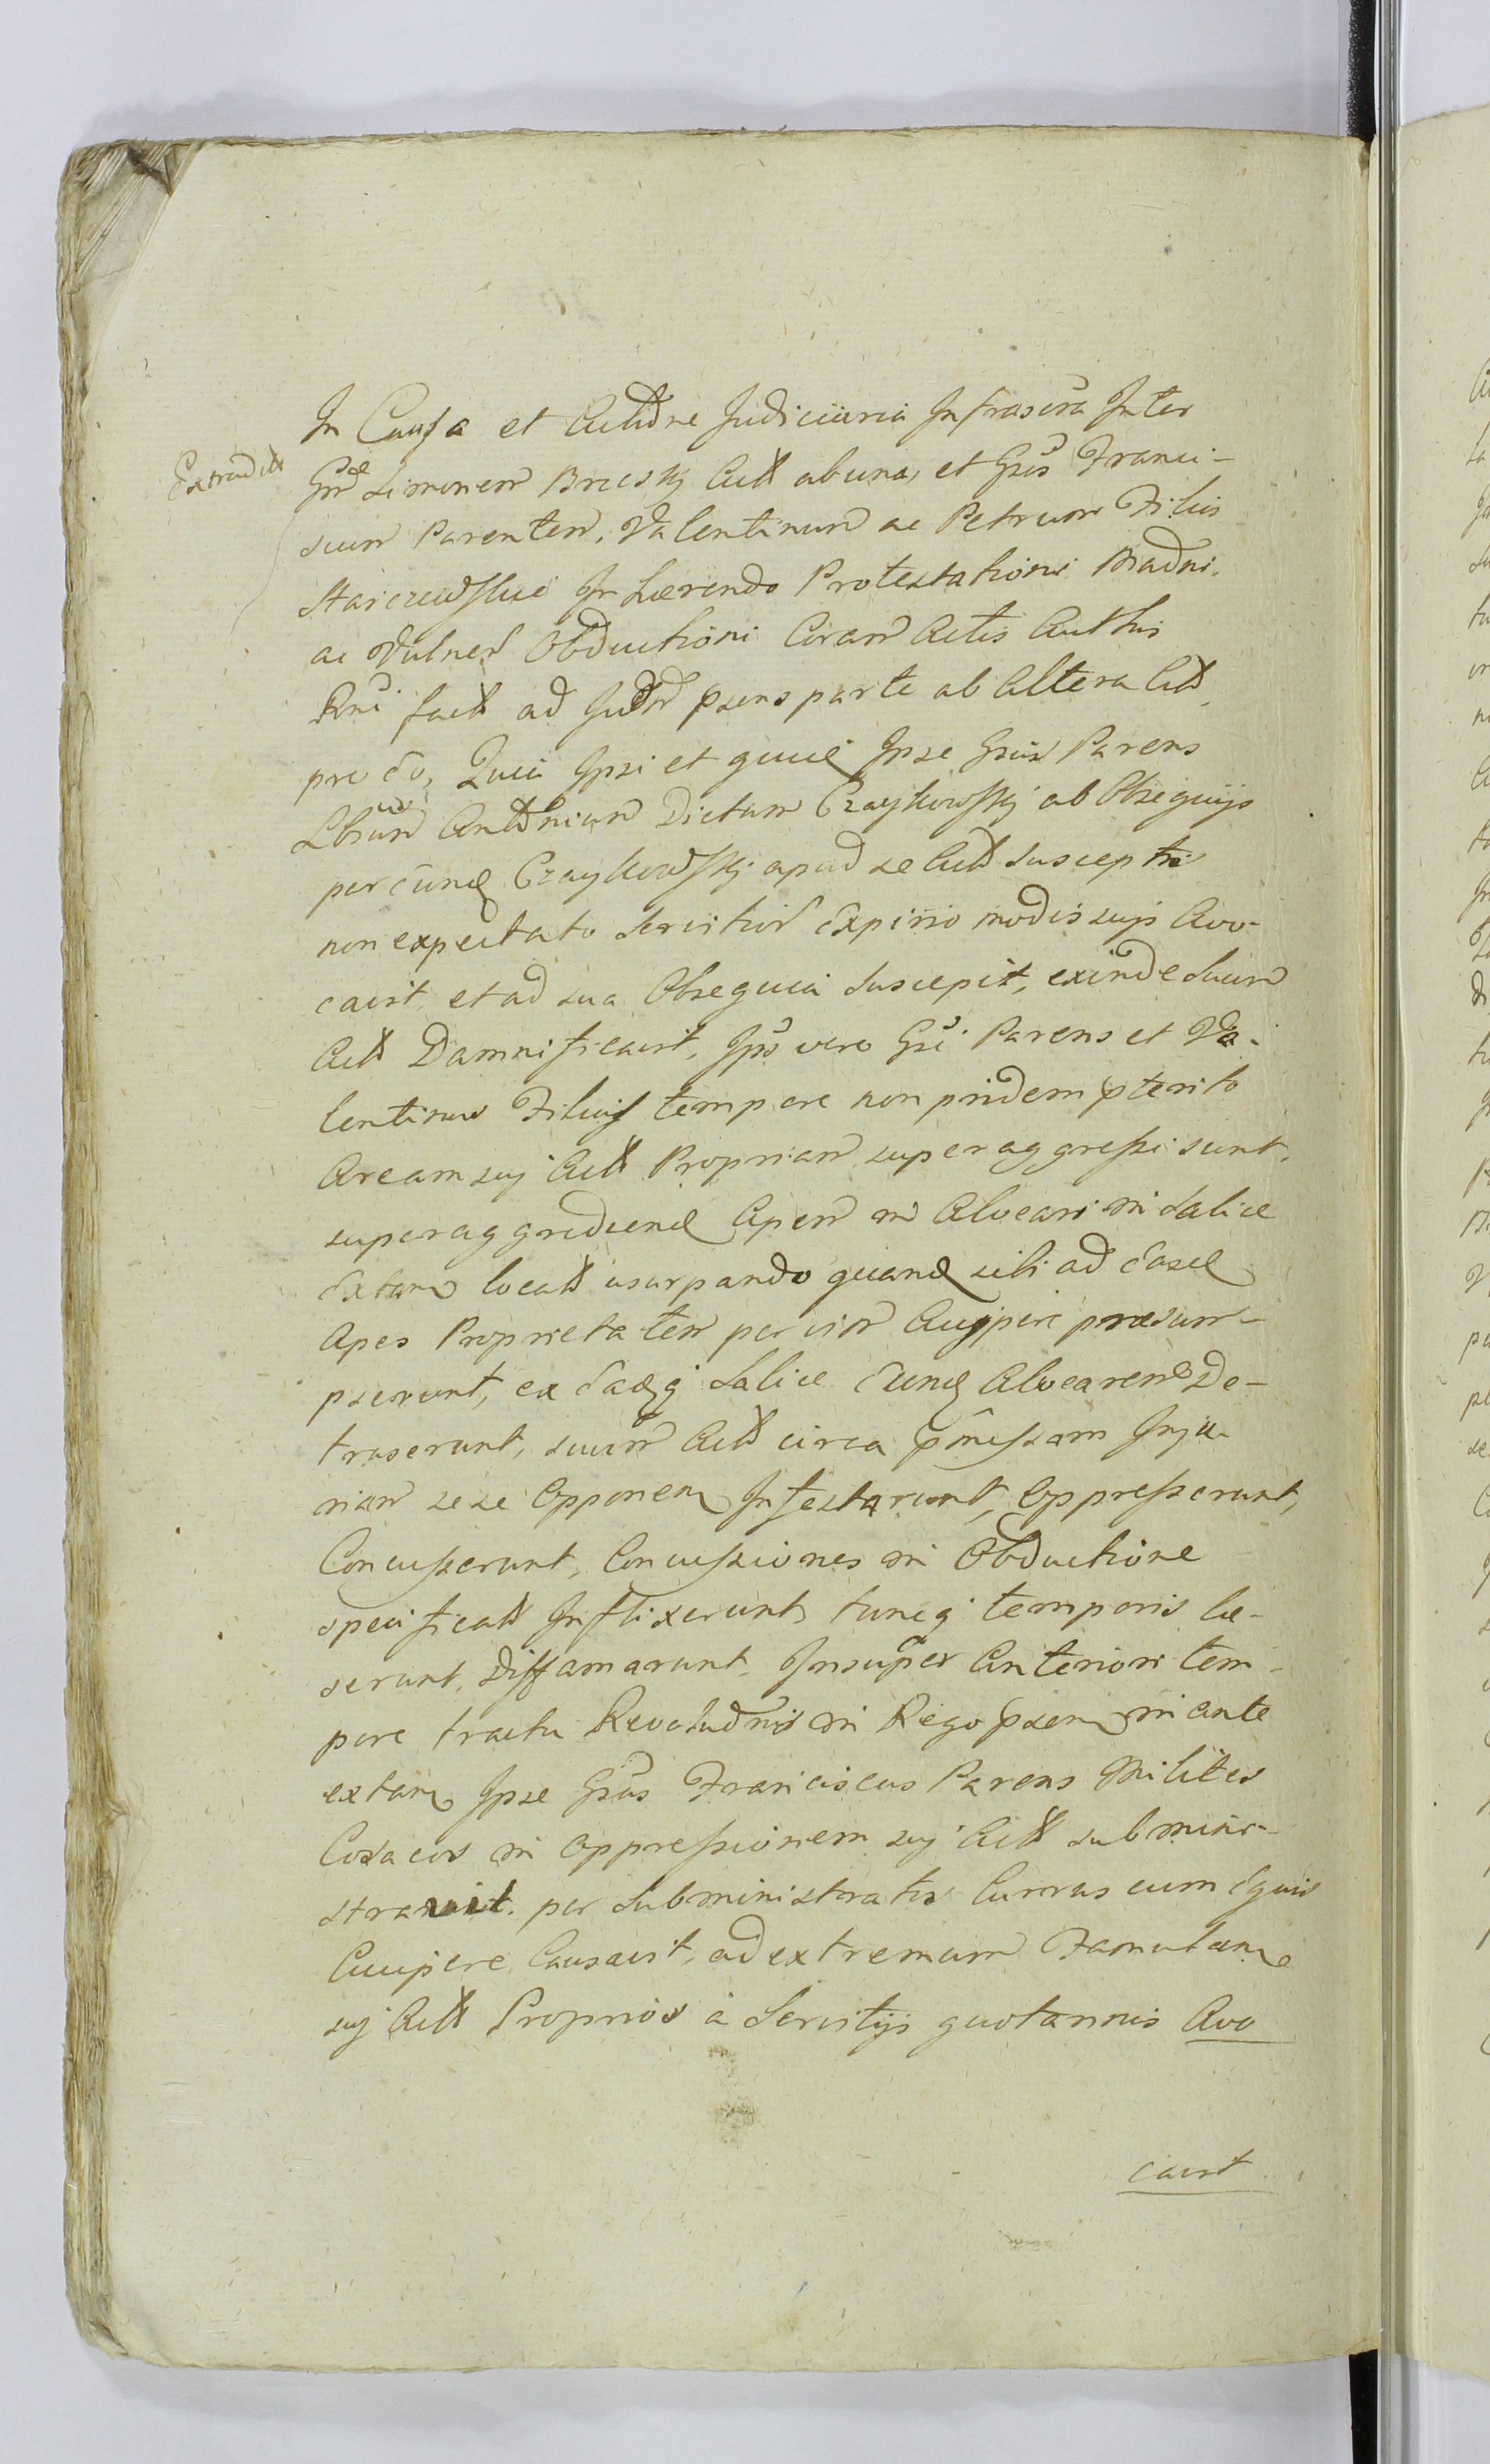 Extradit
In Causa et Actione Judiciaria Infrascra Inter
Gnd Simonem Brzeski Act ab una, et Gsos Franci-
scum Parentem, Valentinum ac Petrum Filios
Starczewskie In hærendo Protestationi Madni.
ac Vulner Obductioni Coram Actis Authis
Rni fact ad Judm psens parte ab Altera Citt
pro eo, Quia Ipsi et quid Ipse Gsus Parens
Lbrum Antonium Dictum Czaykowskj ab Obsequijs
per eund Czaykowskj apud se Act susceptis
non expectato Servitior Expirio modis suis Avo-
cavit, et ad sua Obsequia Suscepit, exinde Suum
Act Damnificavit, Ipsi vero Gsi Parens et Va-
lentinus Filius tempore non pridem pterito
Aream suj Act Propriam superaggressi sunt,
superaggrediend Apem in Alveari in Salice
Extan locatt usurpando quand sibi ad Easd
Apes Proprietatem per vim Accipere præsum-
pserunt, ex Eadq Salice Eund Alvearem De-
traserunt, suum Act circa pmissam Inju-
riam sese Opponen Infestarunt, Oppresserunt,
Concusserunt, Concussiones in Obductione
specificatt Inflixerunt, tuncq temporis læ-
serunt, Diffamarunt, Insuper Anteriori tem-
pore tractu Revoludnis in Regno psen in ante
extan Ipse Gsus Franciscus Parens Milites
Cosacos in Oppressionem suj Act submini-
stravit. per Subministratos Currus cum Equis
Accipere Causavit, ad extremum Famulam
suj Act Proprios à Servitijs quotannis Avo
cavit